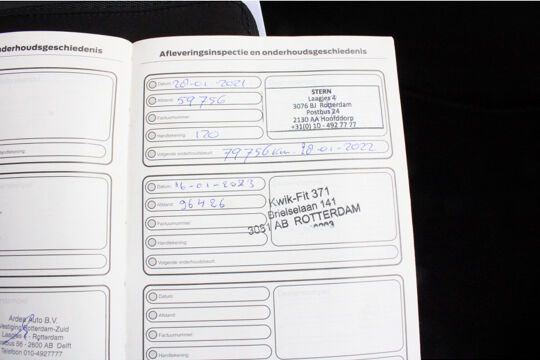 nderhoudsgeschiedenis
Handtekening
Ardea Auto B.V.
Vestiging Rotterdam-Zuid
Laagjes 4 - Rotterdam
Postbus 56 - 2600 AB Delft
Telefoon 010-4927777
Afleveringsinspectie en onderhoudsgeschiedenis
Datum: 28-01-2021
Afstand: 59756
Factuurnummer:
Handtekening: 120
Volgende onderhoudsbeurt: 79756km 28-01-2022
STERN
Laagjes 4
3076 BJ Rotterdam
Postbus 24
2130 AA Hoofddorp
+31(0) 10 - 492 77 77
Datum: 16-01-2023
Afstand: 96426
Factuurnummer:
Handtekening:
Volgende onderhoudsbeurt:
Kwik-Fit 371
Brielselaan 141
3081 AB ROTTERDAM
Datum:
Afstand:
Factuurnummer:
Handtekening: